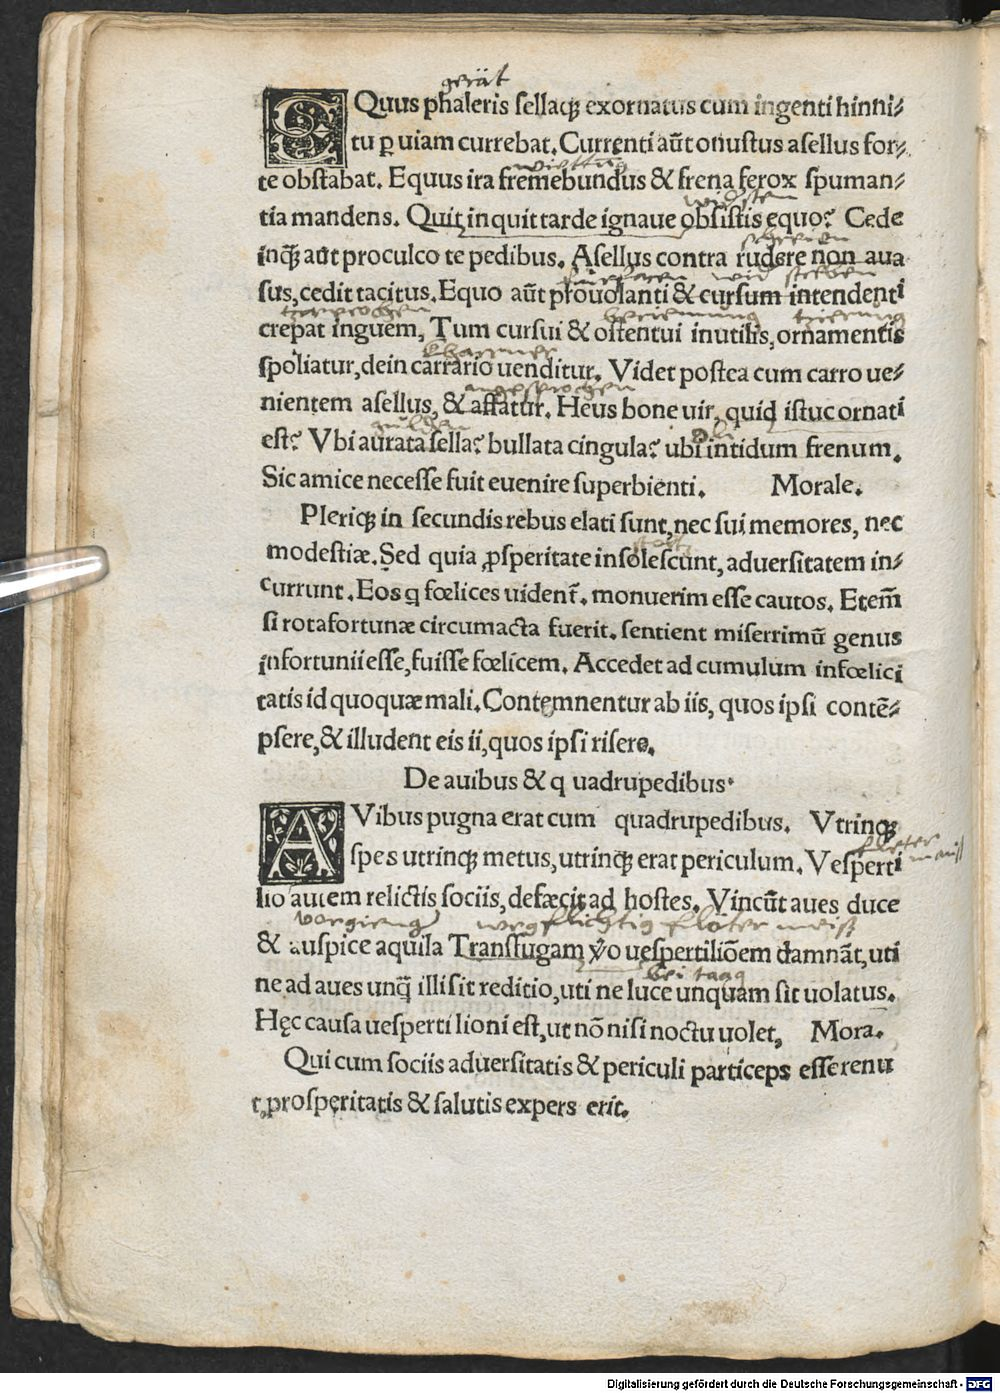 gerät
EQuus phaleris sellaq; exornatus cum ingenti hinni⸗
tu ꝑ uiam currebat. Currenti aūt onustus asellus for⸗
te obstabat. Equus ira fremebundus & frena ferox spuman⸗
tia mandens. Quit inquit tarde ignaue obsistis equo? Cede
inq̄; aūt proculco te pedibus. Asellus contra rudere non aua
sus, cedit tacitus. Equo aūt prouolanti & cursum intendenti
crepat inguem, Tum cursui & ostentui inutilis, ornamentis
spoliatur, dein carrario uenditur. Videt postea cum carro ue⸗
angesprochen
nientem asellus, & affatur. Heus bone uir, quid istuc ornati
est? Vbi aurata sella? bullata cingula? ubi intidum frenum.
Sic amice necesse fuit euenire superbienti. Morale.
Pleriq; in secundis rebus elati sunt, nec sui memores, nec
stoltz
modestiæ. Sed quia ꝓsperitate insolescunt, aduersitatem in⸗
currunt. Eos q fœlices uident̄. monuerim esse cautos. Etem̄
si rota fortunæ circumacta fuerit. sentient miserrimū genus
infortunii esse, fuisse fœlicem. Accedet ad cumulum infœlici
tatis id quoquæ mali. Contemnentur ab iis, quos ipsi contē⸗
psere, & illudent eis ii, quos ipsi risere.
De auibus & q uadrupedibus.
AVibus pugna erat cum quadrupedibus. Vtrinq;
spes utrinq; metus, utrinq; erat periculum. Vesperti
lio autem relictis sociis, defæcit ad hostes. Vincūt aues duce
& auspice aquila Transfugam v̊o uespertiliōem damnāt, uti
bei tagg
ne ad aues unq̄ illi sit reditio, uti ne luce unquam sit uolatus.
Hęc causa uesperti lioni est, ut nō nisi noctu uolet, Mora.
Qui cum sociis aduersitatis & periculi particeps esse renu
t, prosperitatis & salutis expers erit.
Digitalisierung gefördert durch die Deutsche Forschungsgemeinschaft - DFG